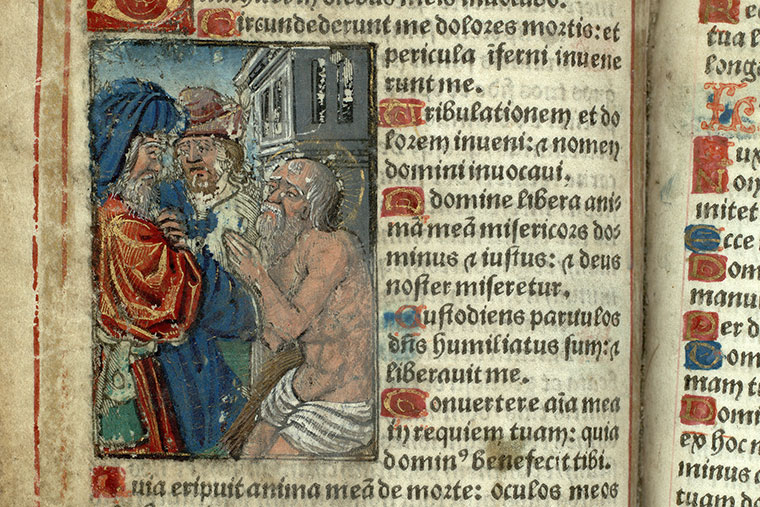 meis inuocabo.
Circundederunt me dolores mortis: et
pericula īferni inuene
runt me.
Tribulationem et do
lorem inueni: ⁊ nomen
domini inuocaui.
O domine libera ani
mā meā misericors do⸗
minus ⁊ iustus: ⁊ deus
noster miseretur.
Custodiens paruulos
dn̄s humiliatus sum: ⁊
liberauit me.
Conuertere aīa mea
in requiem tuam: quia
dominꝰ benefecit tibi.
Quia eripuit anima meā de morte: oculos meos
tua l
longa
Lux
Non
mitet
Ecce
Dom
manu
Per d
Dom
mam tu
Domi
ex hoc n
minus c
tuam do